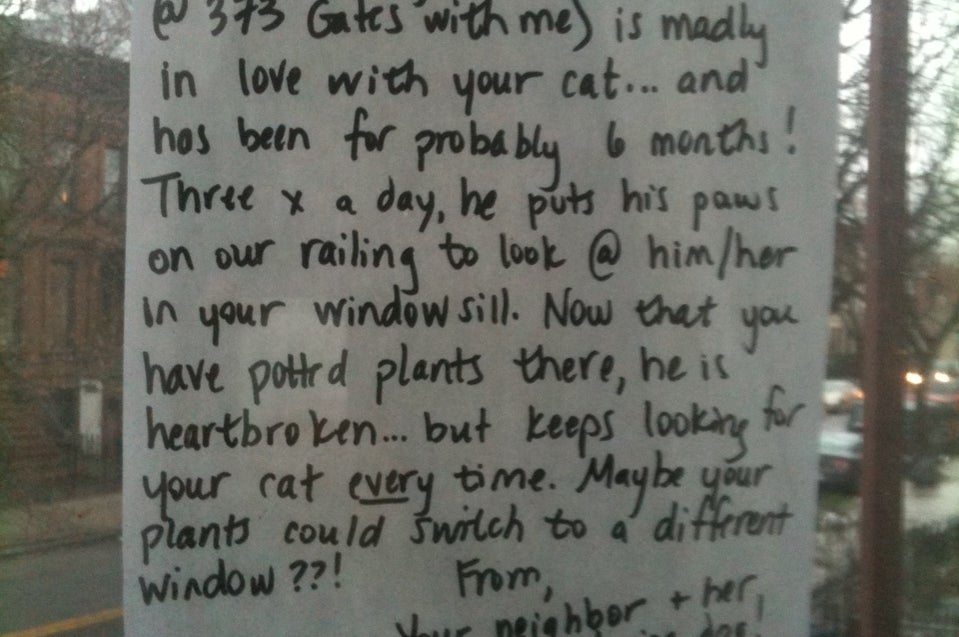 @ 373 Gates with me) is madly
in love with your cat... and
has been for probably 6 months!
Three x a day, he puts his paws
on our railing to look @ him/her
in your windowsill. Now that you
have potted plants there, he is
heartbroken... but keeps looking for
your cat every time. Maybe your
plants could switch to a different
window??! From,
Your neighbor + her,
dog!